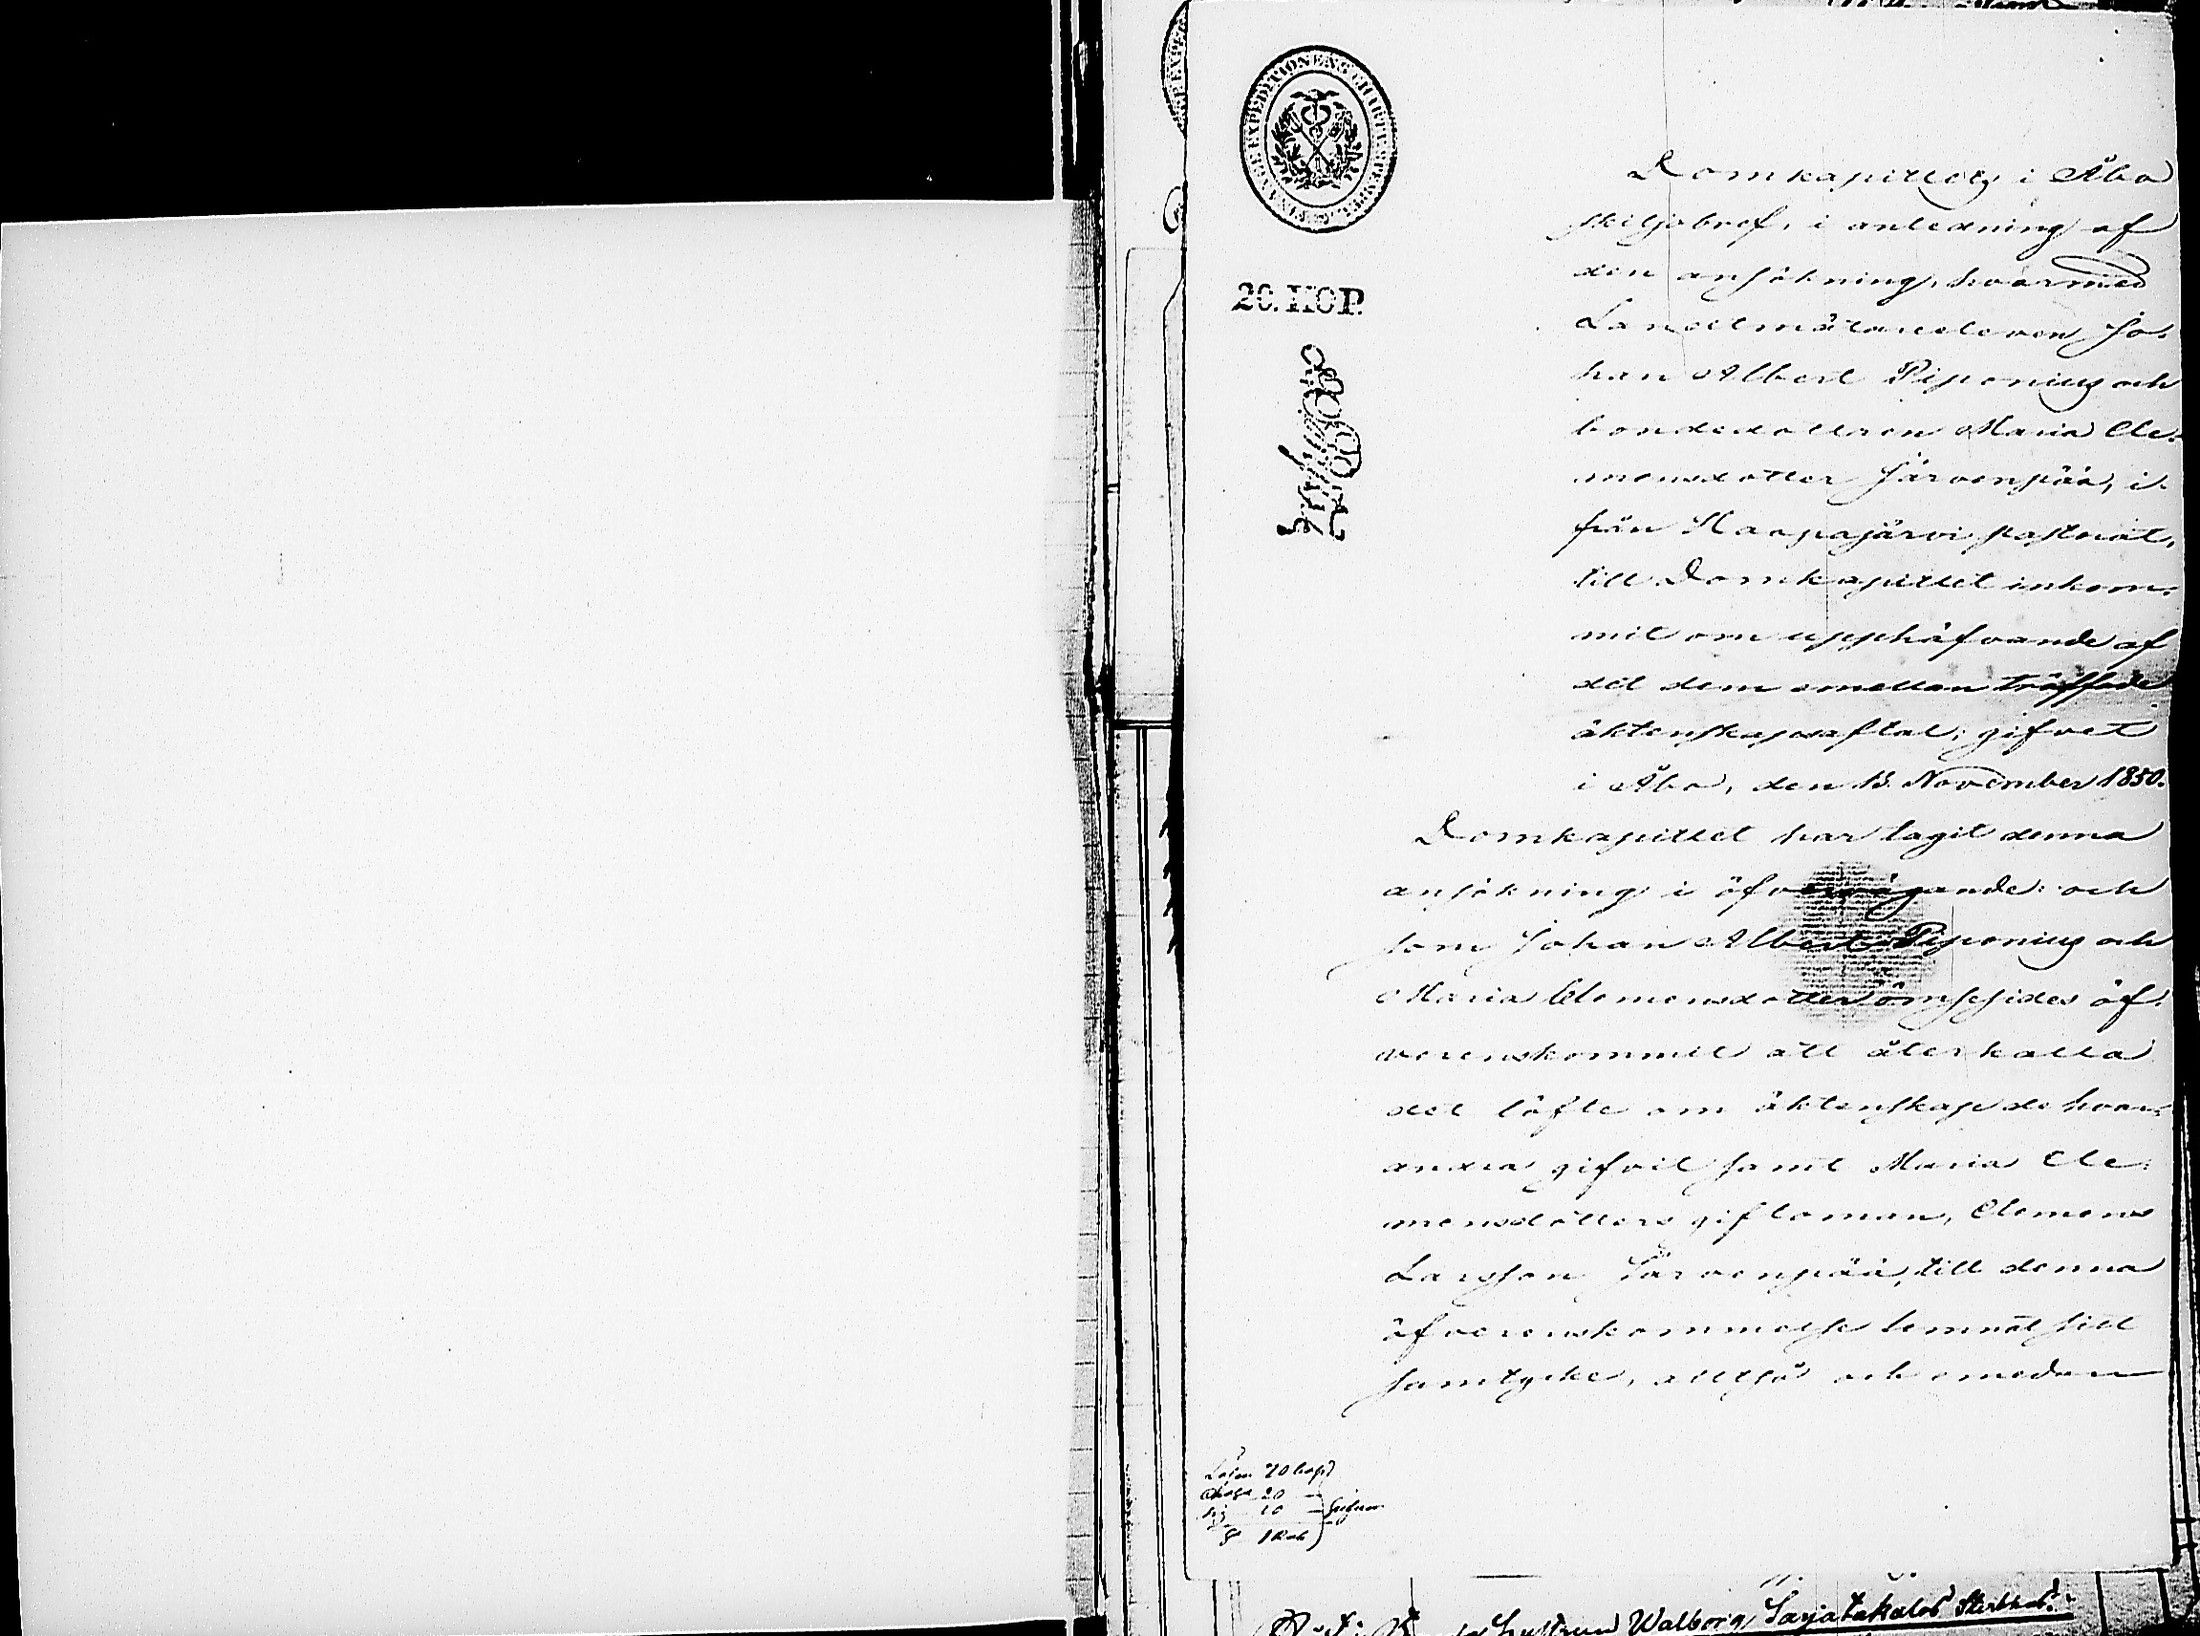 FINANCE EXPEDITIONENS CHARTÆ STEMPEL
20. КОП.
Domkapitlets i Åbo
skiljobref, i anledning af
den ansökning, hvarmed
Landtmätareeleven Jo-
han Albert Piponius och
bondedottren Maria Cle-
mensdotter Järvenpää, i-
från Haapajärvi pastorat,
till Domkapitlet inkom-
mit om upphäfvande af
det dem emellan träffade
äktenskapsaftal; gifvet
i Åbo, den 13. November 1850.
Domkapitlet har tagit denna
ansökning i öfvervägande: och
som Johan Albert Piponius och
Maria Clemensdotter ömsesides öf-
verenskommit att återkalla
det löfte om äktenskap de hvar-
andra gifvit samt Maria Cle-
mensdotters giftoman, Clemens
Larsson Järvenpää, till denna
öfverenskommelse lemnat sitt
samtycke, alltså och emedan
Lösen 70 kop
Charta 20
10
S 1 Rub
Hustrun Walborg Sarjatakalas Sterbhus